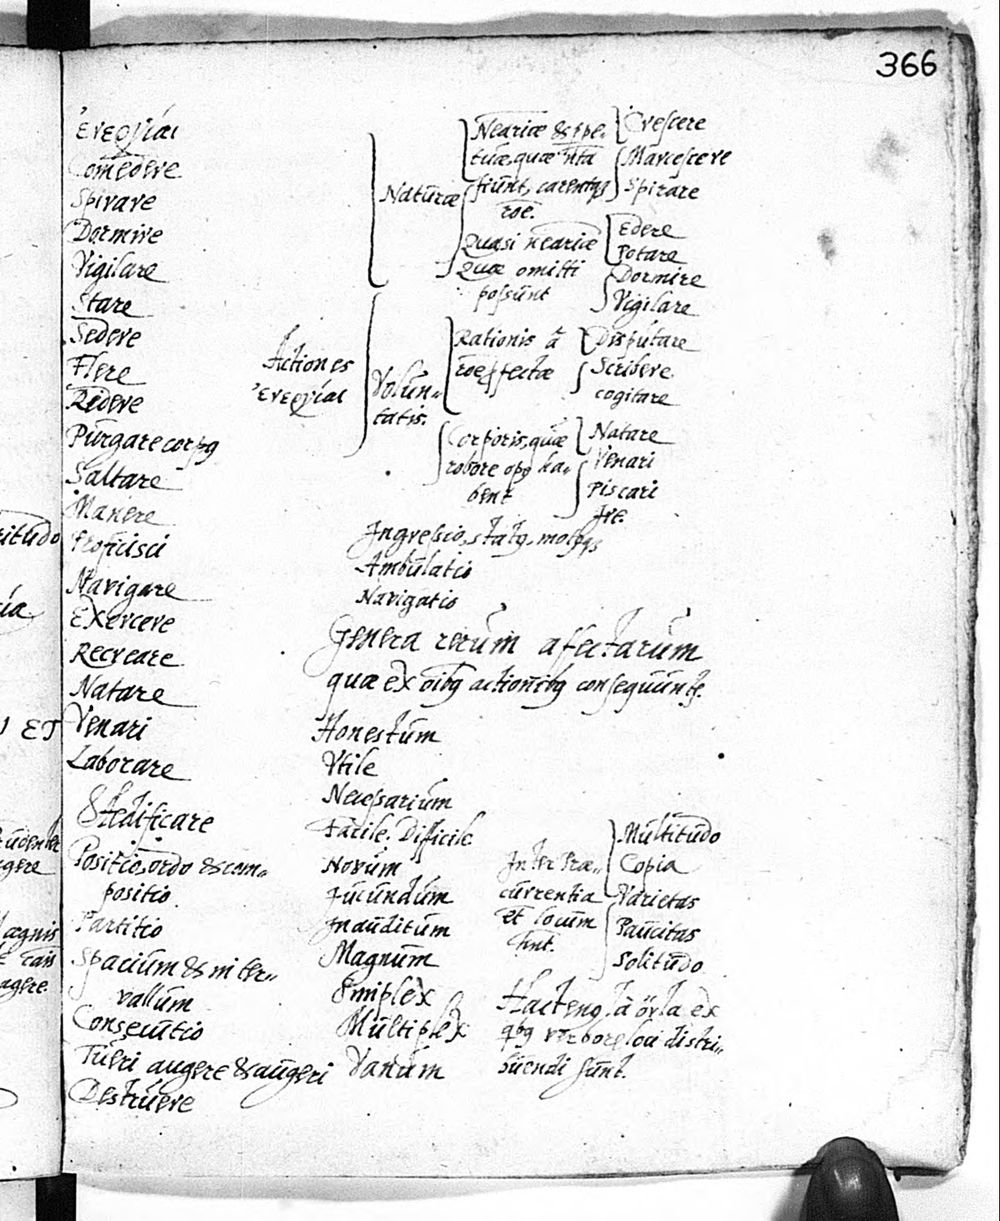 366
ἐνεργίαι
Comedere
Spirare
Dormire
Vigilare
Stare
Sedere
Flere
Ridere
Purgare corpq
Saltare
Manere
Proficisci
Navigare
Exercere
Recreare
Natare
Venari
Laborare
Ædificare
Positio, ordo & com-
positio
Partitio
Spacium & inter-
vallum
Consecutio
Tueri augere & augeri
Destruere
Actiones
ἐνεργίαι
Naturæ
Nēariæ &
tuæ, quæ
fiunt,
rōe.
Crescere
Marcescere
Spirare
Quasi nēariæ
Quæ omitti
possunt
Edere
Potare
Dormire
Vigilare
Volun-
tatis.
Rationis ā
rōe
Disputare
Scribere
cogitare
Corporis, quæ
robore opq ha-
bent
Natare
Venari
Piscari
Ingressio, statq, motqq
Ambulatio
Navigatio
Genera rerum affectarum
quæ ex oībq actionībq consequunt.
Honestum
Vtile
Necessarium
Facile. Difficile
Novum
Jucundum
Inauditum
Magnum
Simplex
Multiplex
Vanum
Inter Præ-
currentia
et locum
hnt.
Multitudo
Copia
Varietas
Paucitas
Solitudo
Hactenq ex
qbq loci distri-
buendi sunt.
itudo
ET
agere
agere.